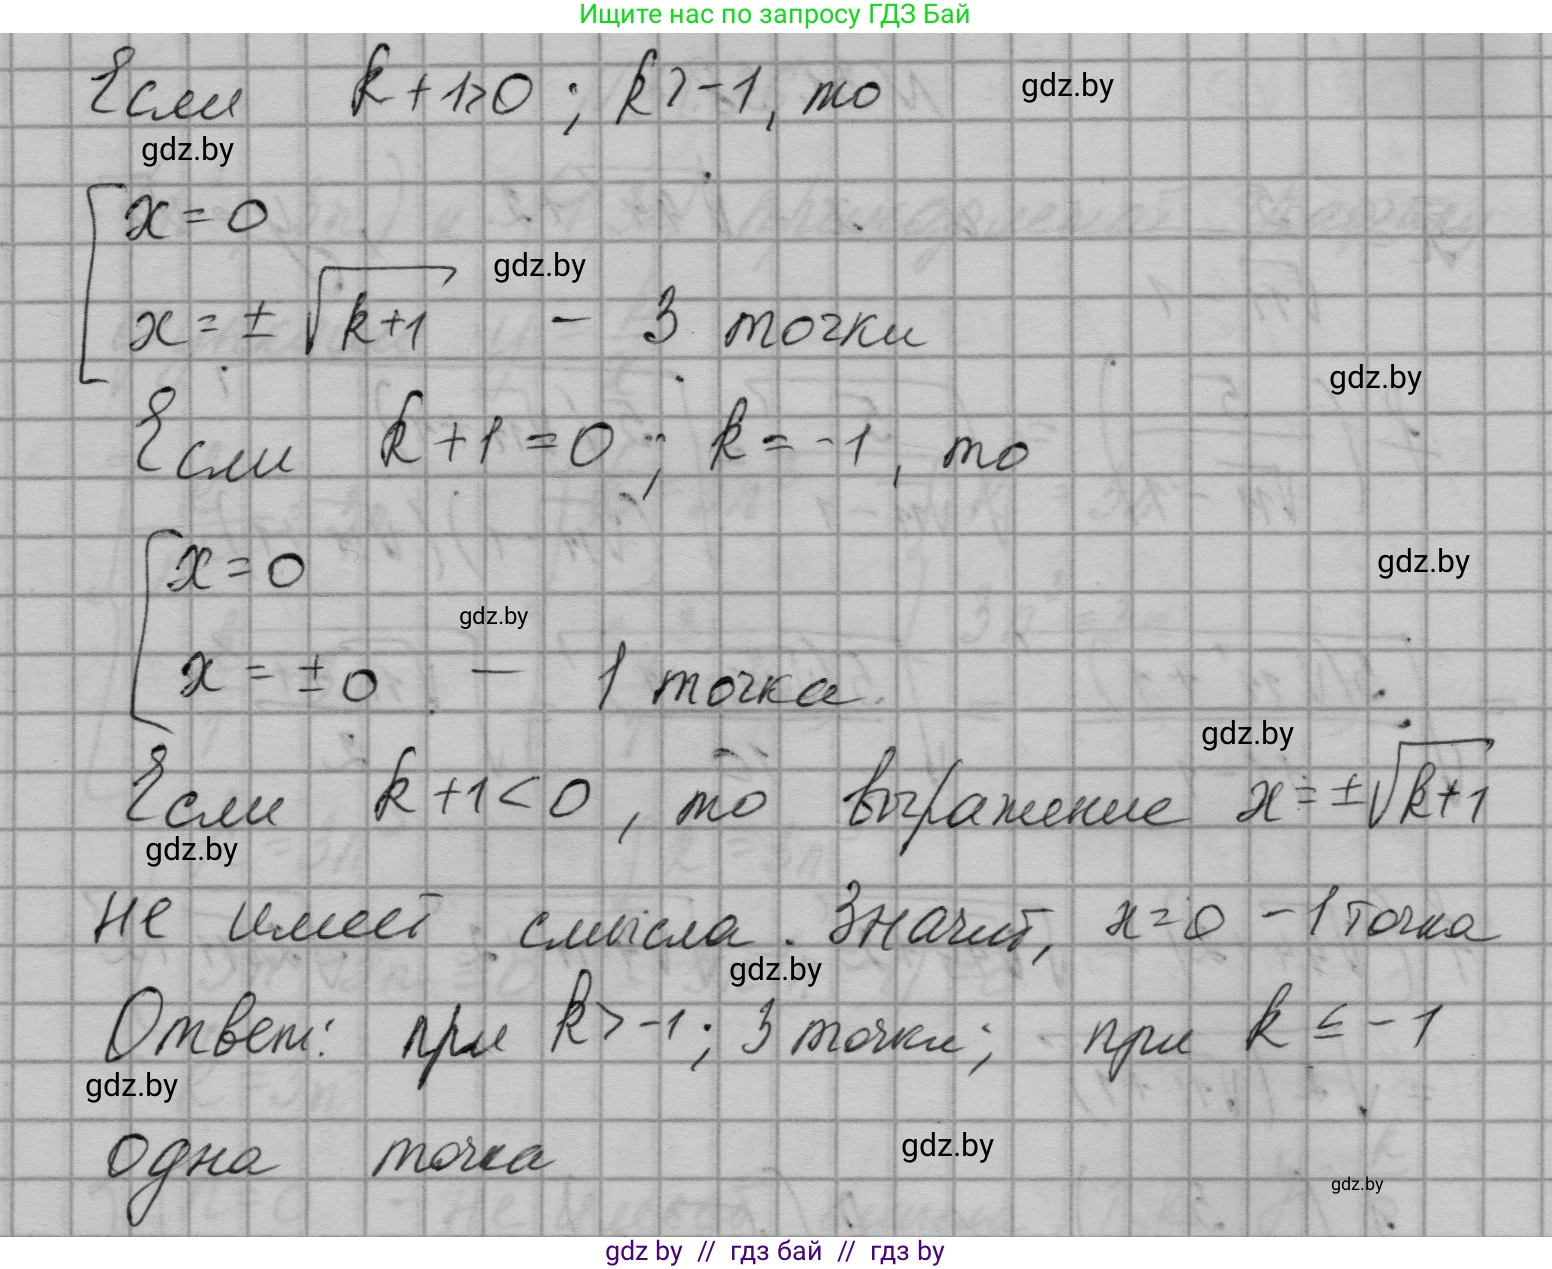 Ищите нас по запросу ГДЗ Бай
Если k+1>0 ; k>-1, то
gdz.by
gdz.by
x=0
gdz.by
x=±√k+1 - 3 точки
gdz.by
Если k+1=0 ; k=-1, то
x=0
gdz.by
gdz.by
x=±0 - 1 точка.
gdz.by
Если k+1<0, то выражение x=±√k+1
gdz.by
не имеет смысла. Значит, x=0 - 1 точка
gdz.by
Ответ: при k>-1; 3 точки; при k≤-1
gdz.by
одна точка
gdz.by
gdz.by
gdz by // гдз бай // гдз by